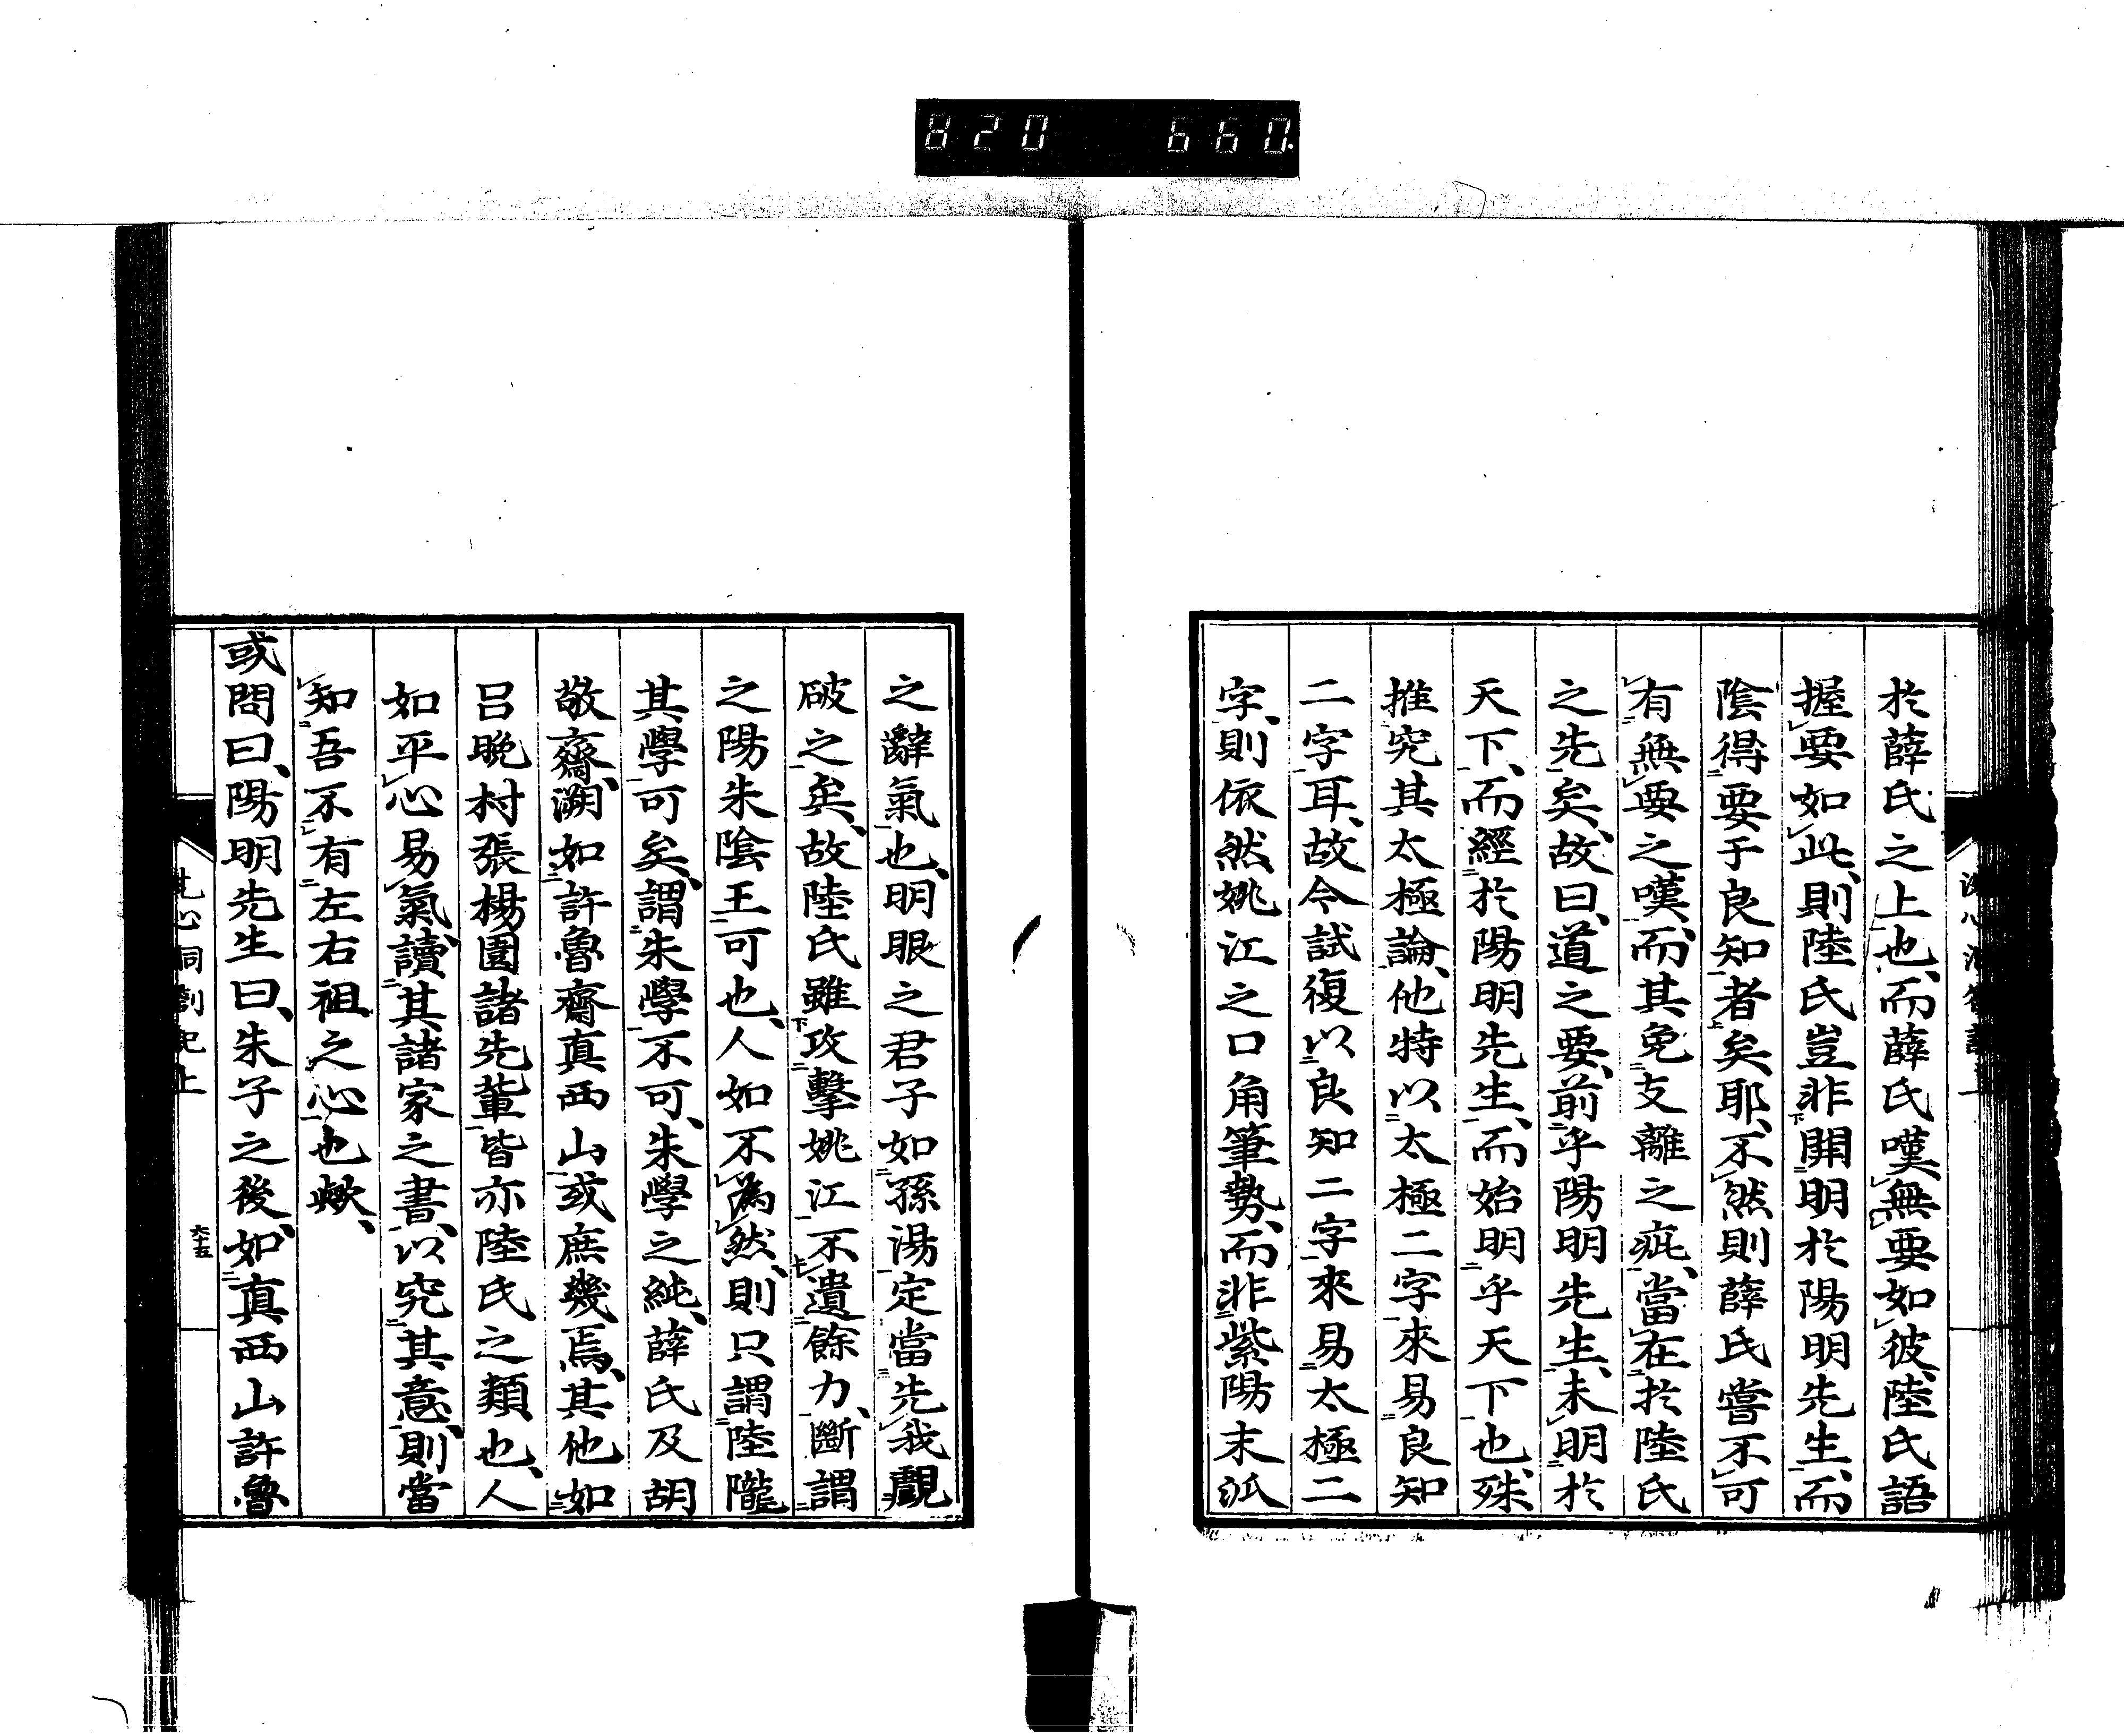 820 660.
於薛氏之上也、而薛氏嘆無要如彼、陸氏語
握要如此、則陸氏豈非開明於陽明先生、而
陰得要于良知者矣耶、不然則薛氏嘗不可
有無要之嘆、而其免支離之疵、當在於陸氏
之先矣、故曰、道之要、前乎陽明先生、未明於
天下、而經於陽明先生、而始明乎天下也、殊
推究其太極論、他特以太極二字來易良知
二字耳、故今試復以良知二字來易太極二
字、則依然姚江之口角筆勢、而非紫陽末派
之辭氣也、明眼之君子如孫湯定當先我覷
破之矣、故陸氏雖攻擊姚江不遺餘力、斷謂
之陽朱陰王可也、人如不為然、則只謂陸隴
其學可矣、謂朱學不可、朱學之純、薛氏及胡
敬齋、溯如許魯齋真西山或庶幾焉、其他如
呂晚村張楊園諸先輩皆亦陸氏之類也、人
如平心易氣、讀其諸家之書、以究其意、則當
知吾不有左右祖之心也歟、
或問曰、陽明先生曰、朱子之後、如真西山許魯
洞劄記上
六十五